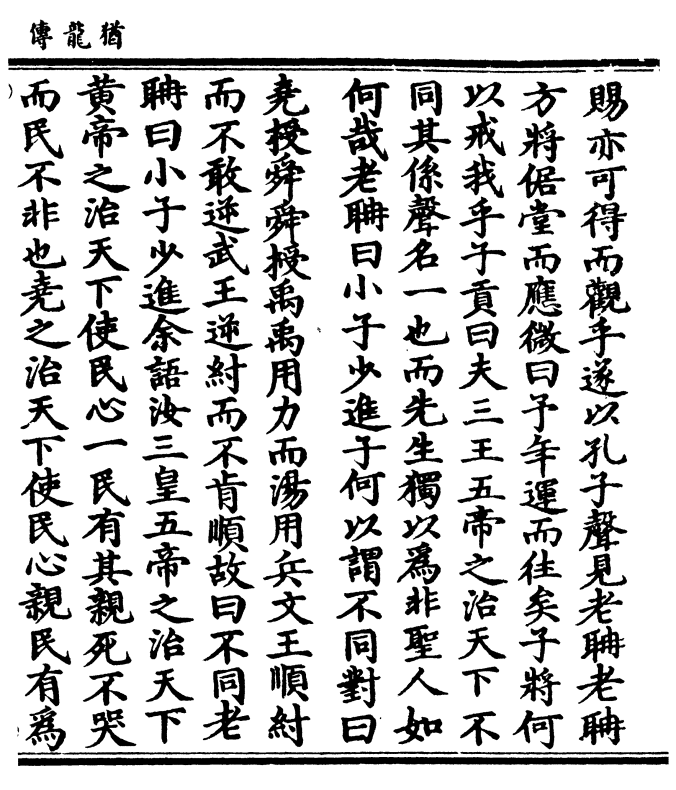 猶龍傳
賜亦可得而觀乎遂以孔子聲見老聃老聃
方將倨堂而應微曰予年運而往矣子將何
以戒我乎子貢曰夫三王五帝之治天下不
同其係聲名一也而先生獨以爲非聖人如
何哉老聃曰小子少進子何以謂不同對曰
堯授舜舜授禹禹用力而湯用兵文王順紂
而不敢逆武王逆紂而不肯順故曰不同老
聃曰小子少進余語汝三皇五帝之治天下
黄帝之治天下使民心一民有其親死不哭
而民不非也堯之治天下使民心親民有爲